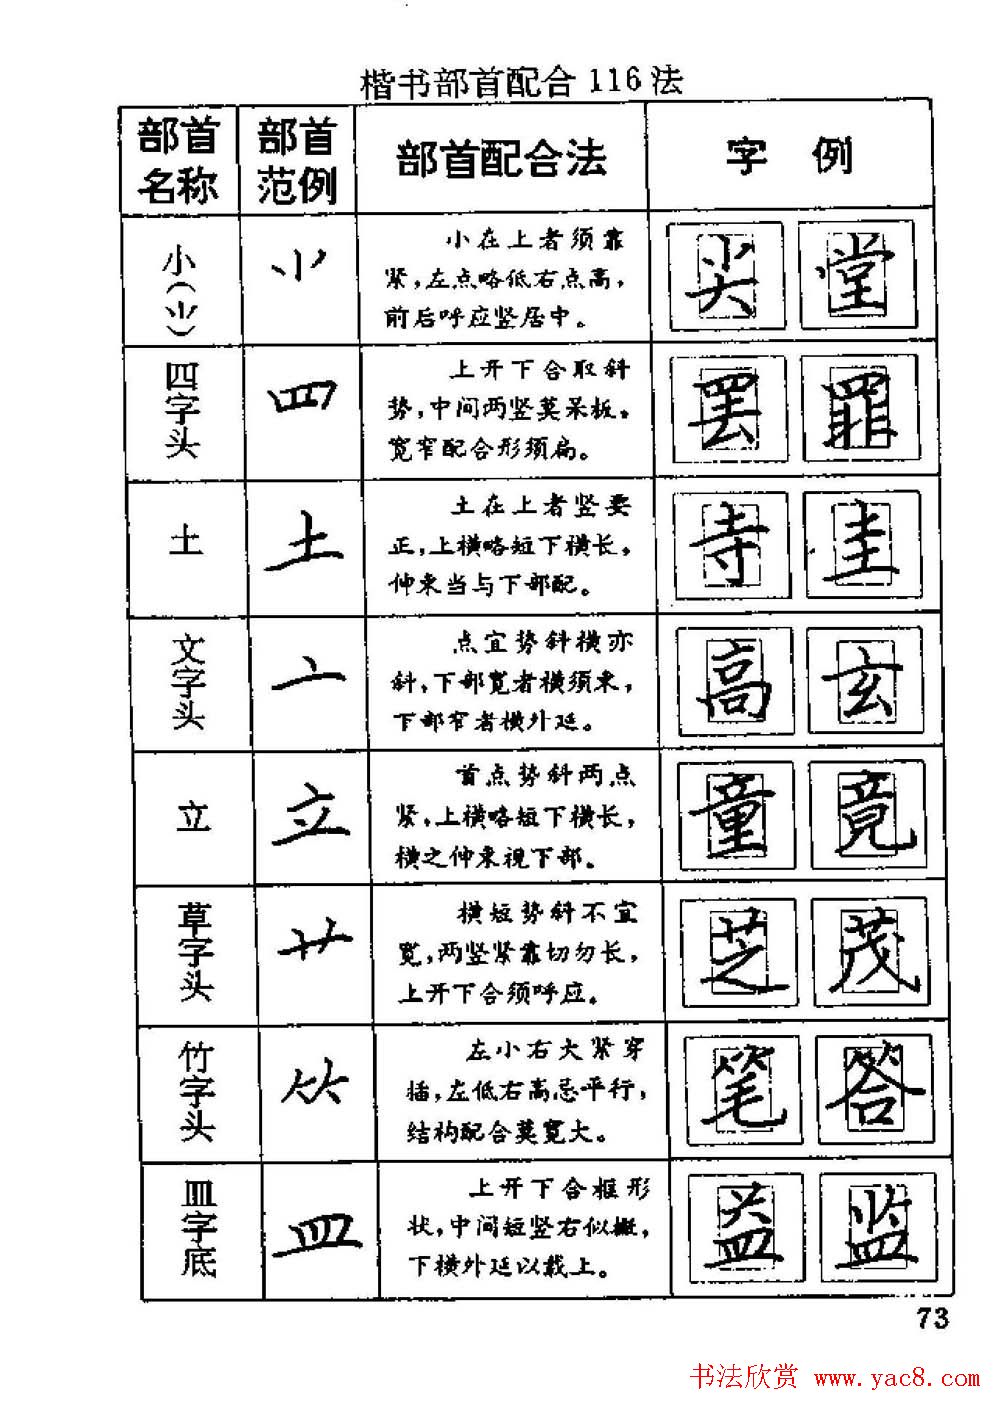 楷书部首配合116法
部首名称 部首范例 部首配合法 字 例
小(⺌) ⺌ 小在上者须靠 尖 堂
紧,左点略低右点高,
前后呼应竖居中。
四字头 罒 上开下合取斜 罢 罪
势,中间两竖莫呆板。
宽窄配合形须扁。
土 土 土在上者竖要 寺 圭
正,上横略短下横长。
伸来当与下部配。
文字头 亠 点宜势斜横亦 高 玄
斜,下部宽者横须来,
下部窄者横外延。
立 立 首点势斜两点 童 竟
紧,上横略短下横长,
横之伸来视下部。
草字头 艹 横短势斜不宜 芝 茂
宽,两竖紧靠切勿长,
上开下合须呼应。
竹字头 ⺮ 左小右大紧穿 笔 答
插,左低右高忌平行,
结构配合莫宽大。
皿字底 皿 上开下合框形 益 监
状,中间短竖右似撇,
下横外延以载上。
73
书法欣赏 www.yac8.com